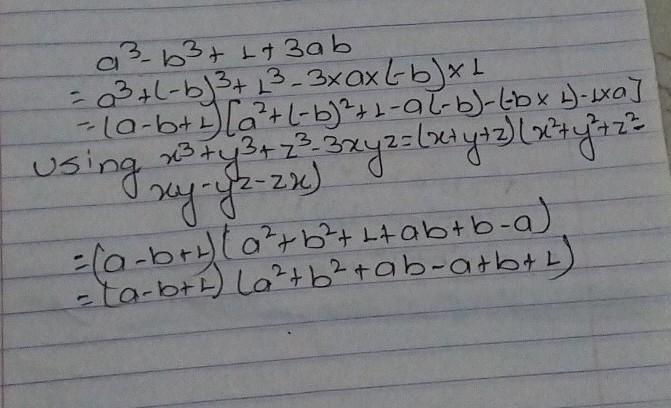 a³-b³+1+3ab
=a³+(-b)³+1³-3×a×(-b)×1
=(a-b+1)[a²+(-b)²+1-a(-b)-(-b×1)-1×a]
using x³+y³+z³-3xyz=(x+y+z)(x²+y²+z²-
xy-yz-zx)
=(a-b+1)(a²+b²+1+ab+b-a)
=(a-b+1)(a²+b²+ab-a+b+1)